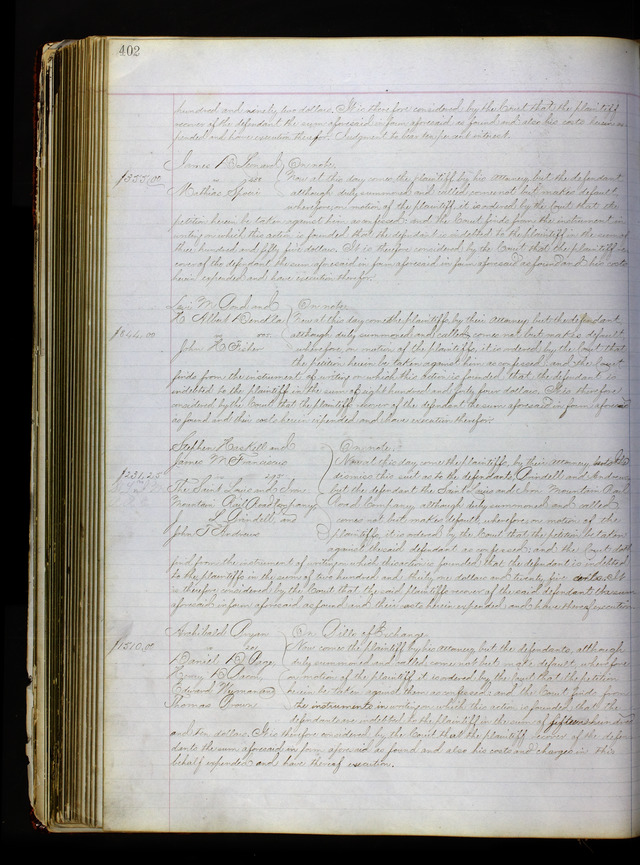 402
hundred and ninety two dollars. It is therefore considered by the Court that the plaintiff
recover of the defendant the sum aforesaid in form aforesaid as found and also his costs herein ex-
pended and have execution therefor. Judgment to bear ten per cent interest.
James On note.
$355.00 vs Now at this day comes the plaintiff by his attorney but the defendant
Mathias although duly summoned and called comes not but makes default
wherefore, on motion of the plaintiff, it is ordered by the Court that the
petition herein be taken against him as confessed; and the Court finds from the instrument in
writing on which this action is founded that the defendant is indebted to the plaintiff in the sum of
three hundred and fifty five dollars. It is therefore considered by the Court that the plaintiff re-
cover of the defendant the sum aforesaid in form aforesaid in form aforesaid as found and his costs
herein expended and have execution therefor.
Levi M. and On note.
H. Albert Now at this day come the plaintiffs by their attorney but the defendant
$844.00 vs. although duly summoned and called, comes not but makes default
John wherefore, on motion of the plaintiffs, it is ordered by the Court that
the petition herein be taken against him as confessed; and the Court
finds from the instrument of writing on which this action is founded, that the defendant is
indebted to the plaintiff in the sum of eight hundred and forty four dollars. It is therefore
considered by the Court that the plaintiff recover of the defendant the sum aforesaid in form aforesaid
as found and this costs herein expended and have execution therefor.
Stephen and On note.
James M. Franciscus Now at this day come the plaintiffs, by their attorney, and
$231.25 vs dismiss this suit as to the defendants, and Andrews
The Saint Louis and Iron but the defendant the Saint Louis and Iron Mountain Rail
Mountain Rail Road Company Road Company although duly summoned and called
L. and comes not but makes default, wherefore on motion of the
John T. Andrews plaintiffs, it is ordered by the Court that the petition be taken
against the said defendant as confessed; and the Court doth
find from the instrument of writing on which this action is founded, that the defendant is indebted
to the plaintiffs in the sum of two hundred and thirty one dollars and twenty five cents. It
is therefore considered by the Court that the said plaintiffs recover of the said defendant the sum
aforesaid in form aforesaid as found and their costs herein expended and have thereof execution
Archibald On Bills of Exchange
$1510.00 vs Now comes the plaintiff by his attorney but the defendants, although
Daniel D. Page duly summoned and called come not but make default, wherefore
Henry D. Bacon on motion of the plaintiff it is ordered by the Court that the petition
Edward and herein be taken against them as confessed; and the Court finds from
Thomas Brown the instruments in writing on which this action is founded, that the
defendants are indebted to the plaintiff in the sum of fifteen hundred
and ten dollars. It is therefore considered by the Court that the plaintiff recover of the defen-
dants the sum aforesaid in form aforesaid as found and also his costs and charges in this
behalf expended and have thereof execution.